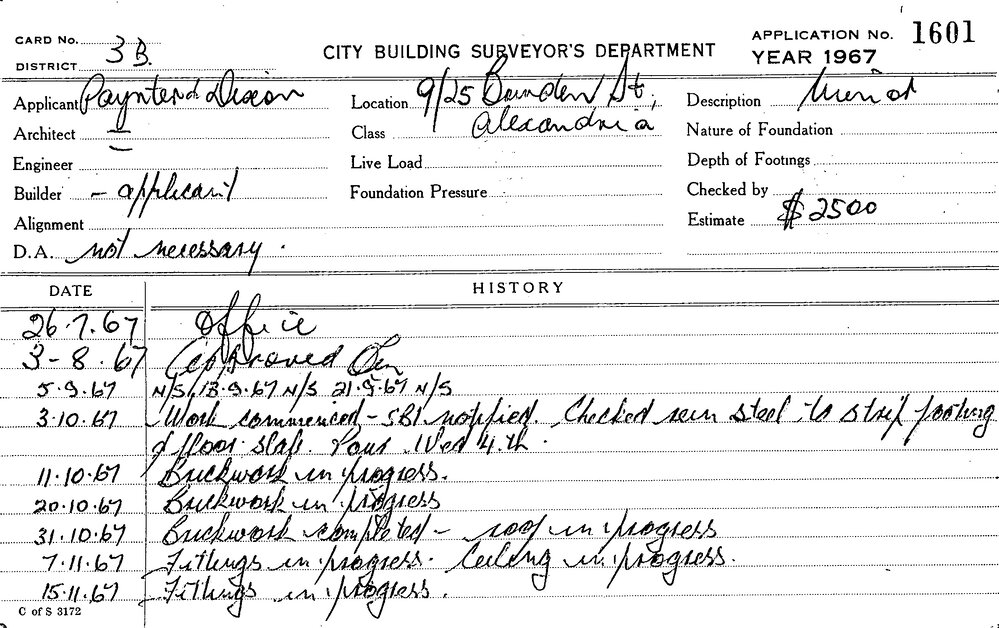 CARD No. 3B.
DISTRICT
CITY BUILDING SURVEYOR'S DEPARTMENT
APPLICATION No. 1601
YEAR 1967
Applicant Paynter & Dixon
Location 9/25 Bowden St,
Alexandria
Description Minor
Architect —
Class
Nature of Foundation
Engineer
Live Load
Depth of Footings
Builder - applicant
Foundation Pressure
Checked by
Alignment
Estimate $2500
D.A. not necessary.
DATE HISTORY
26.7.67 Office
3-8.67 Approved
5.9.67 N/S 13.9.67 N/S 21.9.67 N/S
3.10.67 Work commenced - SBI notified. Checked rein steel to strip footing
& floor slab. Pour Wed 4.th.
11.10.67 Brickwork in progress.
20.10.67 Brickwork in progress
31.10.67 Brickwork completed - roof in progress
7.11.67 Fittings in progress. Ceiling in progress.
15.11.67 Fittings in progress.
C of S 3172